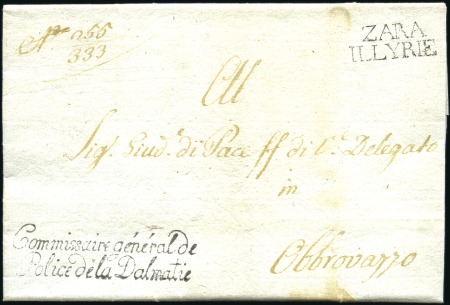 No 266
333
ZARA
ILLYRIE
All
Sigr. Giude. di Pace ff di Ve. Delegato
in
Obbrovazzo
Commissaire général de
Police de la Dalmatie